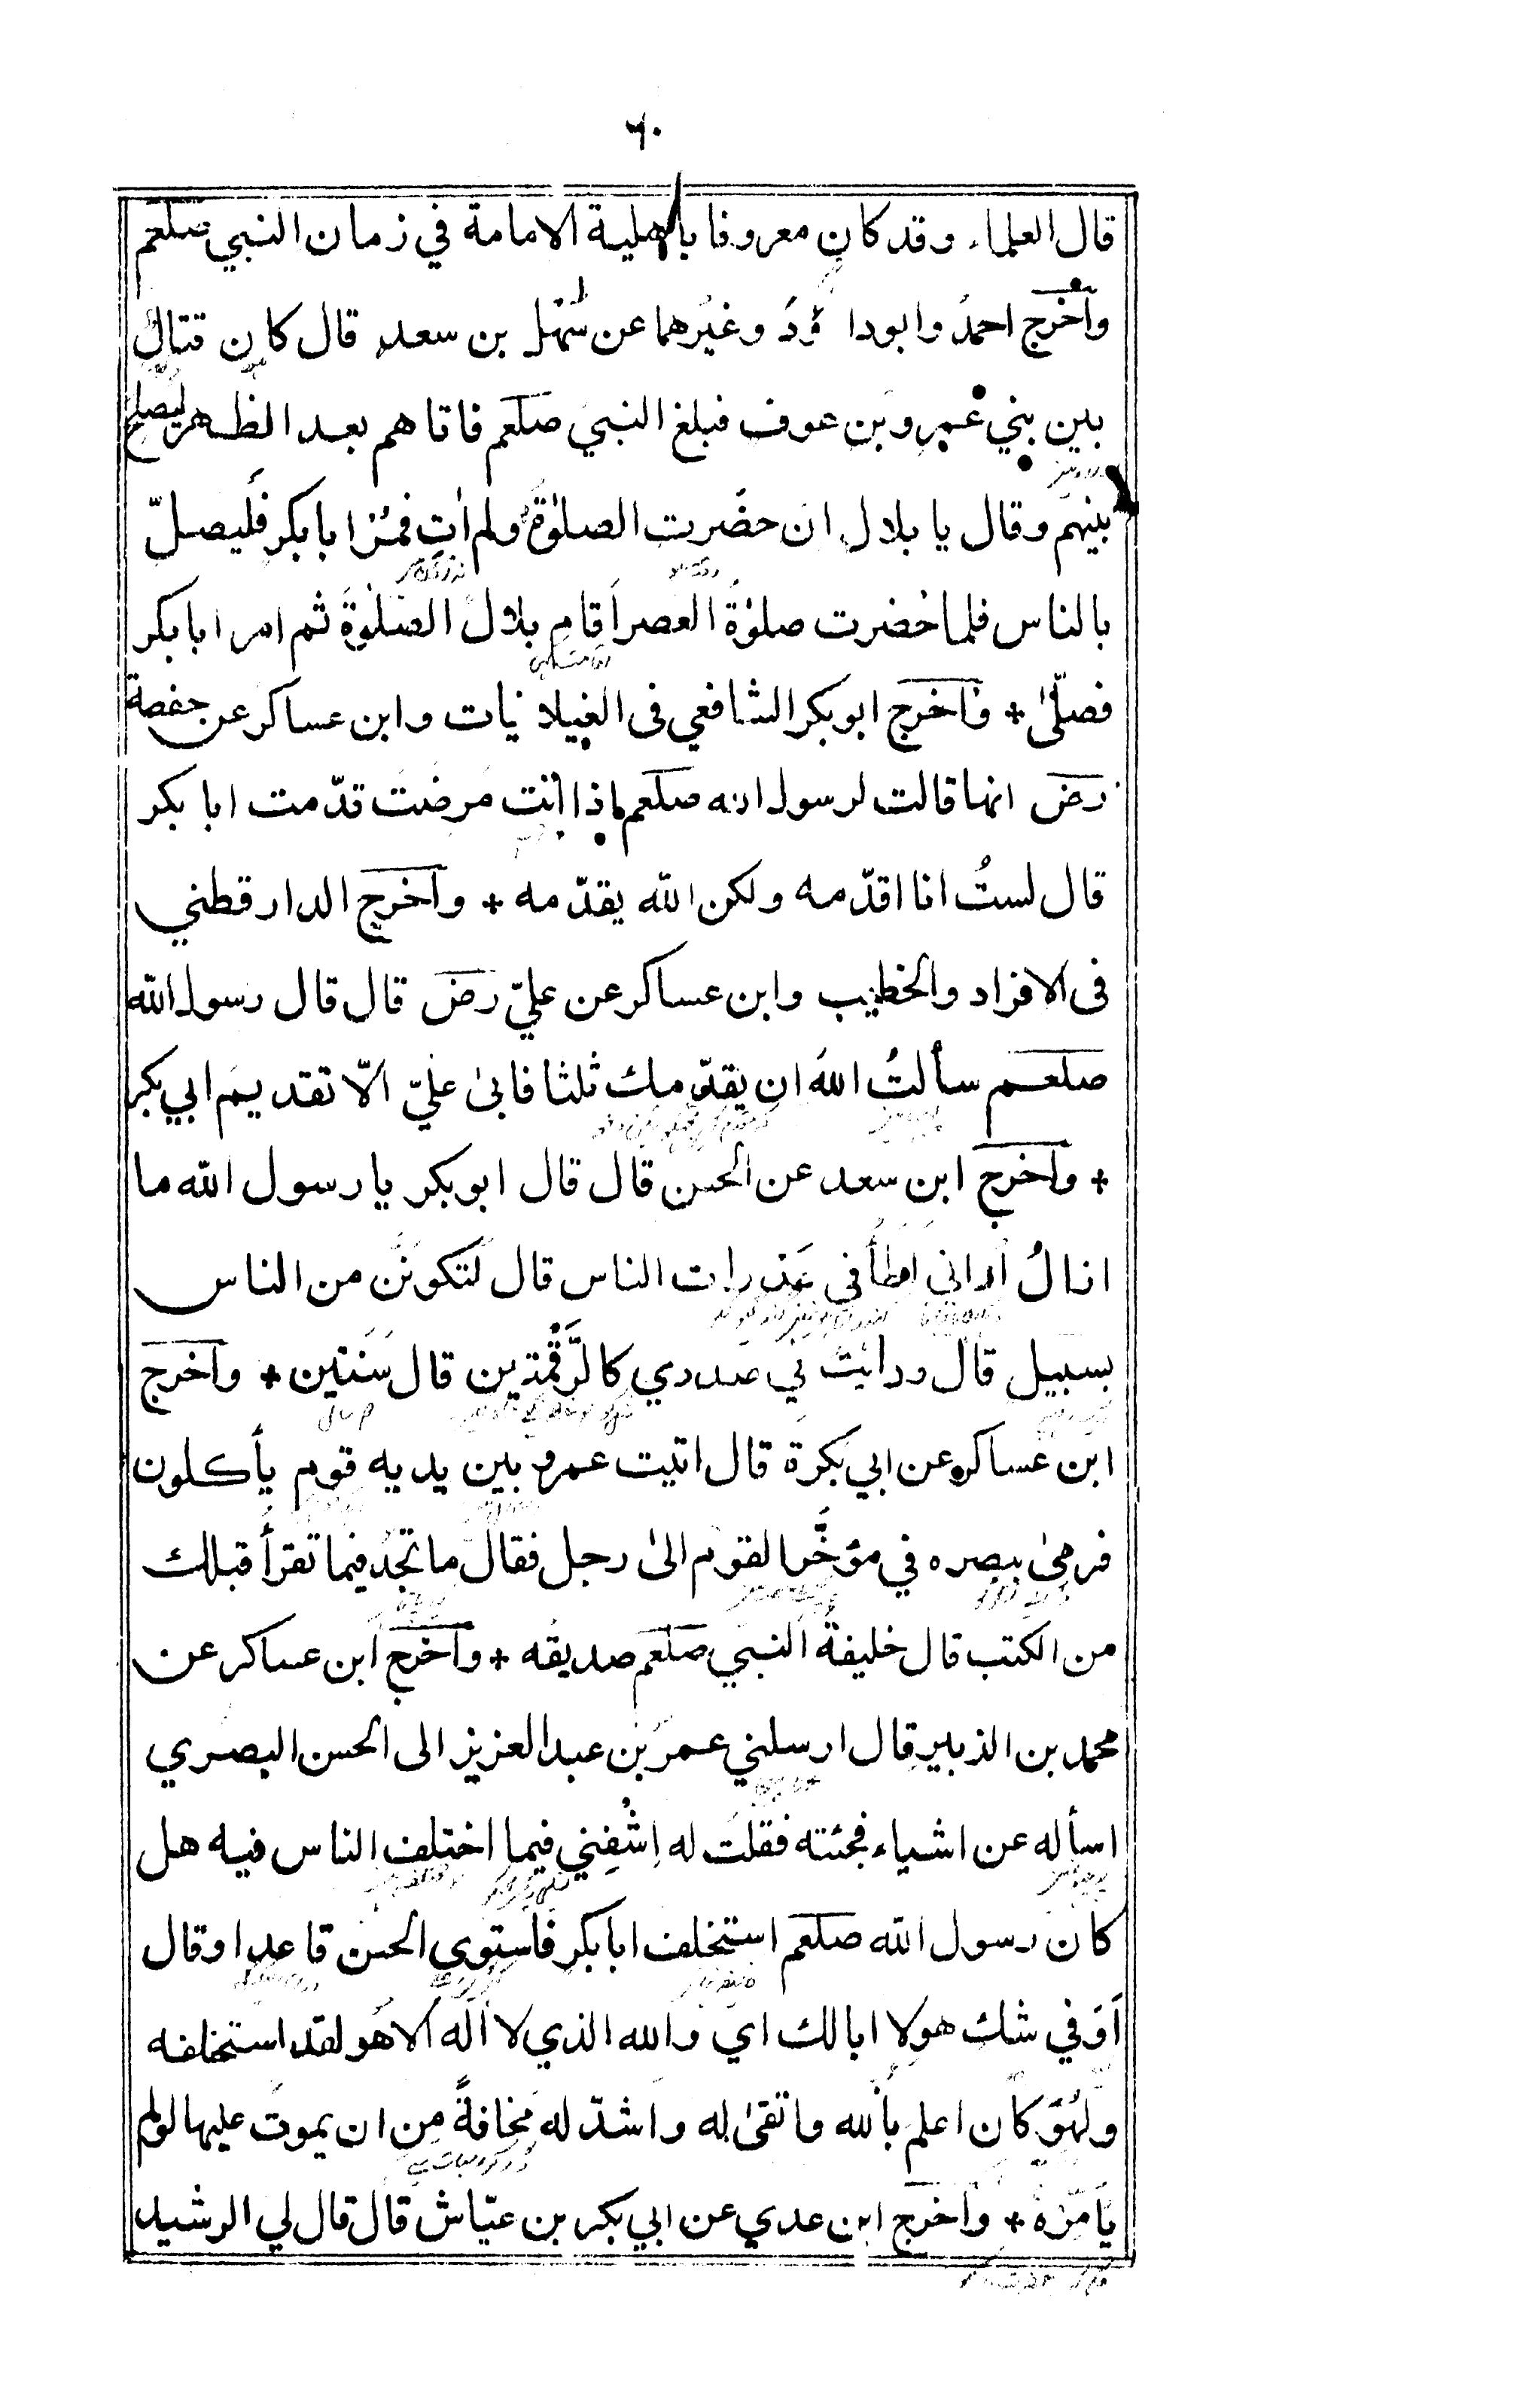 ٦٠
قال العلماء وقد كان معروفا باهلية الامامة في زمان النبي صلعم
وأخرج احمدُ وابوداؤدَ وغيرهما عن سُهل بن سعد قال كان قتالٌ
بين بني عمرو بن عوف فبلغ النبيَ صلعم فاتاهم بعد الظهر ليصلح
بينهم وقال يا بلال ان حضَرت الصلوٰة ولم اٰتِ فمُرْ ابابكر فَليصلّ
بالناس فلما حضرت صلوٰةُ العصر اَقام بلال الصلوٰةَ ثم امر ابابكر
فصلّىٰ + واَخرج ابوبكر الشافعي فى الغيلانيات وابن عساكر عن حفصة
رضـ انها قالت لرسول الله صلعم اذا انت مَرضتَ قدّمت ابابكر
قال لستُ انا اقدّمه ولكن اللّه يقدّمه + واَخرج الدار قطني
فى الافراد والخطيب وابن عساكر عن عليّ رضـ قال قال رسول اللّه
صلعم سألتُ اللهَ ان يقدّمك ثلثا فابىٰ عَليّ الّا تقديمَ ابي بكر
+ واَخرج ابن سعد عن الحسن قال قال ابوبكر يا رسول اللّه ما
ازالُ اَراني اَطَأُ في عَذرات الناس قال لَتكونَنَّ من الناس
بسبيل قال ورأيتُ في صدري كالرَّقْمَتين قال سَنَتين + واَخرج
ابن عساكر عن ابي بَكرةَ قال اتيت عمر و بين يديه قوم يأكلون
فرمىٰ ببصره في مؤخَّر القوم الىٰ رجل فقال ما تجدُ فيما تقرأُ قبلك
من الكتب قال خليفةُ النبي صلعم صديقُه + واَخرج ابن عساكر عن
محمد بن الزبير قال ارسلني عمر بن عبد العزيز الى الحسن البصري
اسأله عن اشياء فجئته فقلت له اِشْفِني فيما اختلف الناس فيه هل
كان رسول اللّه صلعم استخلف ابابكر فاستوى الحسن قاعدا وقال
أَوَفي شك هولا ابالك اي والله الذي لا اله الا هُو لقد استخلفه
ولهُوَ كان اعلم بالله واتقىٰ له واشدّ له مخافةً مِن ان يموتَ عليها لو لم
يأمرْه + واَخرج ابن عدي عن ابي بكر بن عيّاش قال قال لي الرشيد